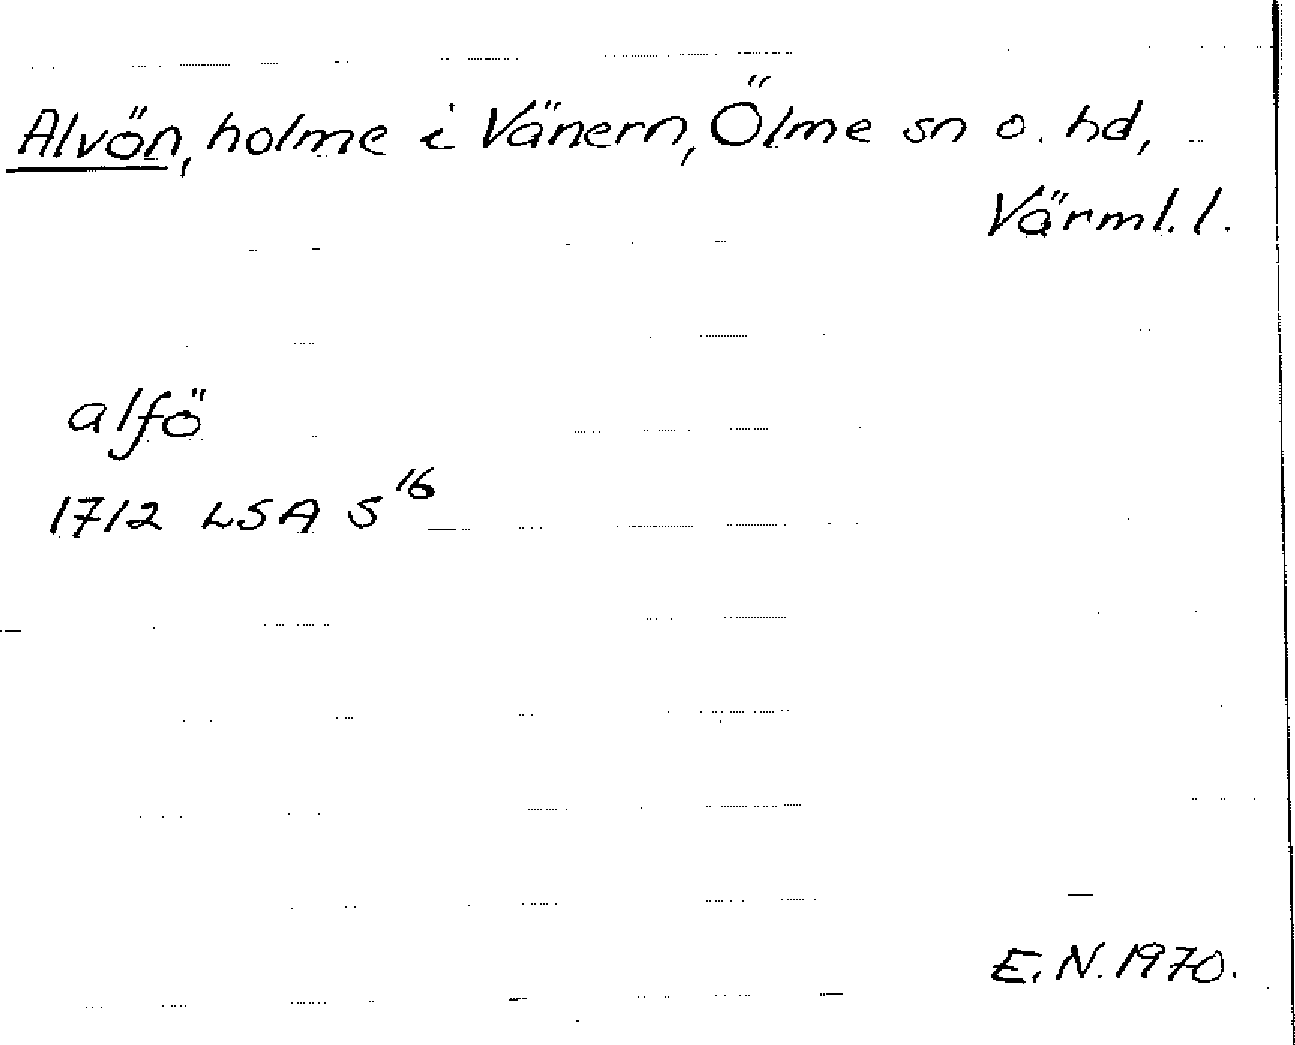 Alvön, holme i Vänern, Ölme sn o. hd,
Värml. l.
alfö
1712 LSA S 16
E.N. 1970.